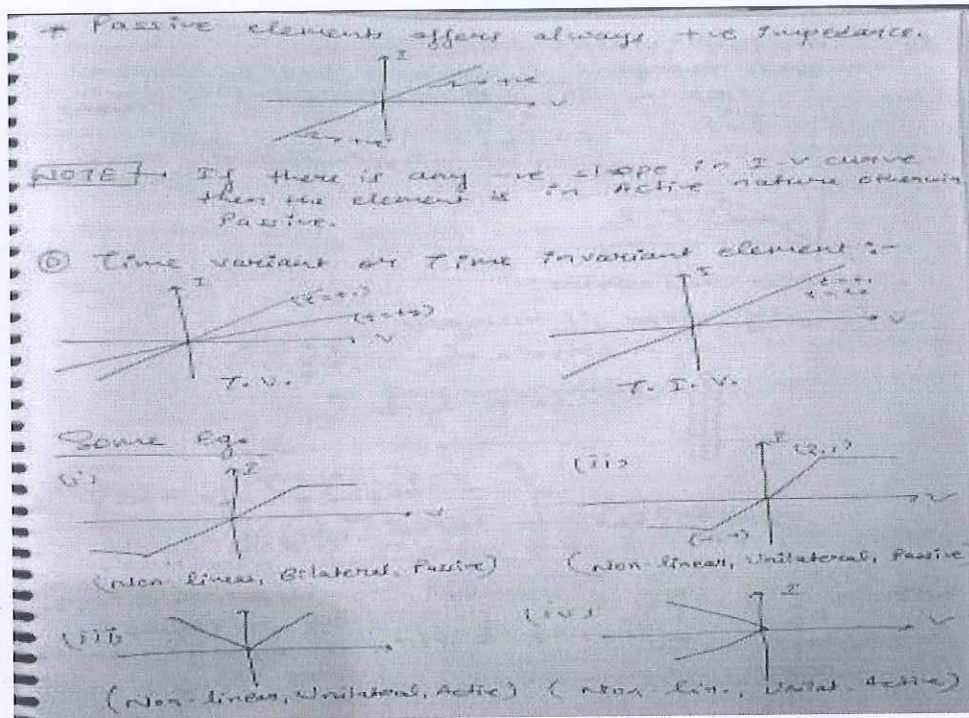 * Passive elements offers always +ve Impedance.
I
+ve
V
+ve
NOTE → If there is any -ve slope in I-V curve
then the element is in Active nature otherwise
Passive.
⑥ Time variant or Time invariant element :-
I
(t=t1)
(t=t2)
V
T. V.
I
t=t1
t=t2
V
T. I. V.
Some Eg.
(i)
I
V
(Non-linear, Bilateral, Passive)
(ii)
I
(2,1)
V
(Non-linear, Unilateral, Passive
(iii)
(Non-linear, Unilateral, Active)
(iv)
I
V
(Non-lin., Unilat. Active)